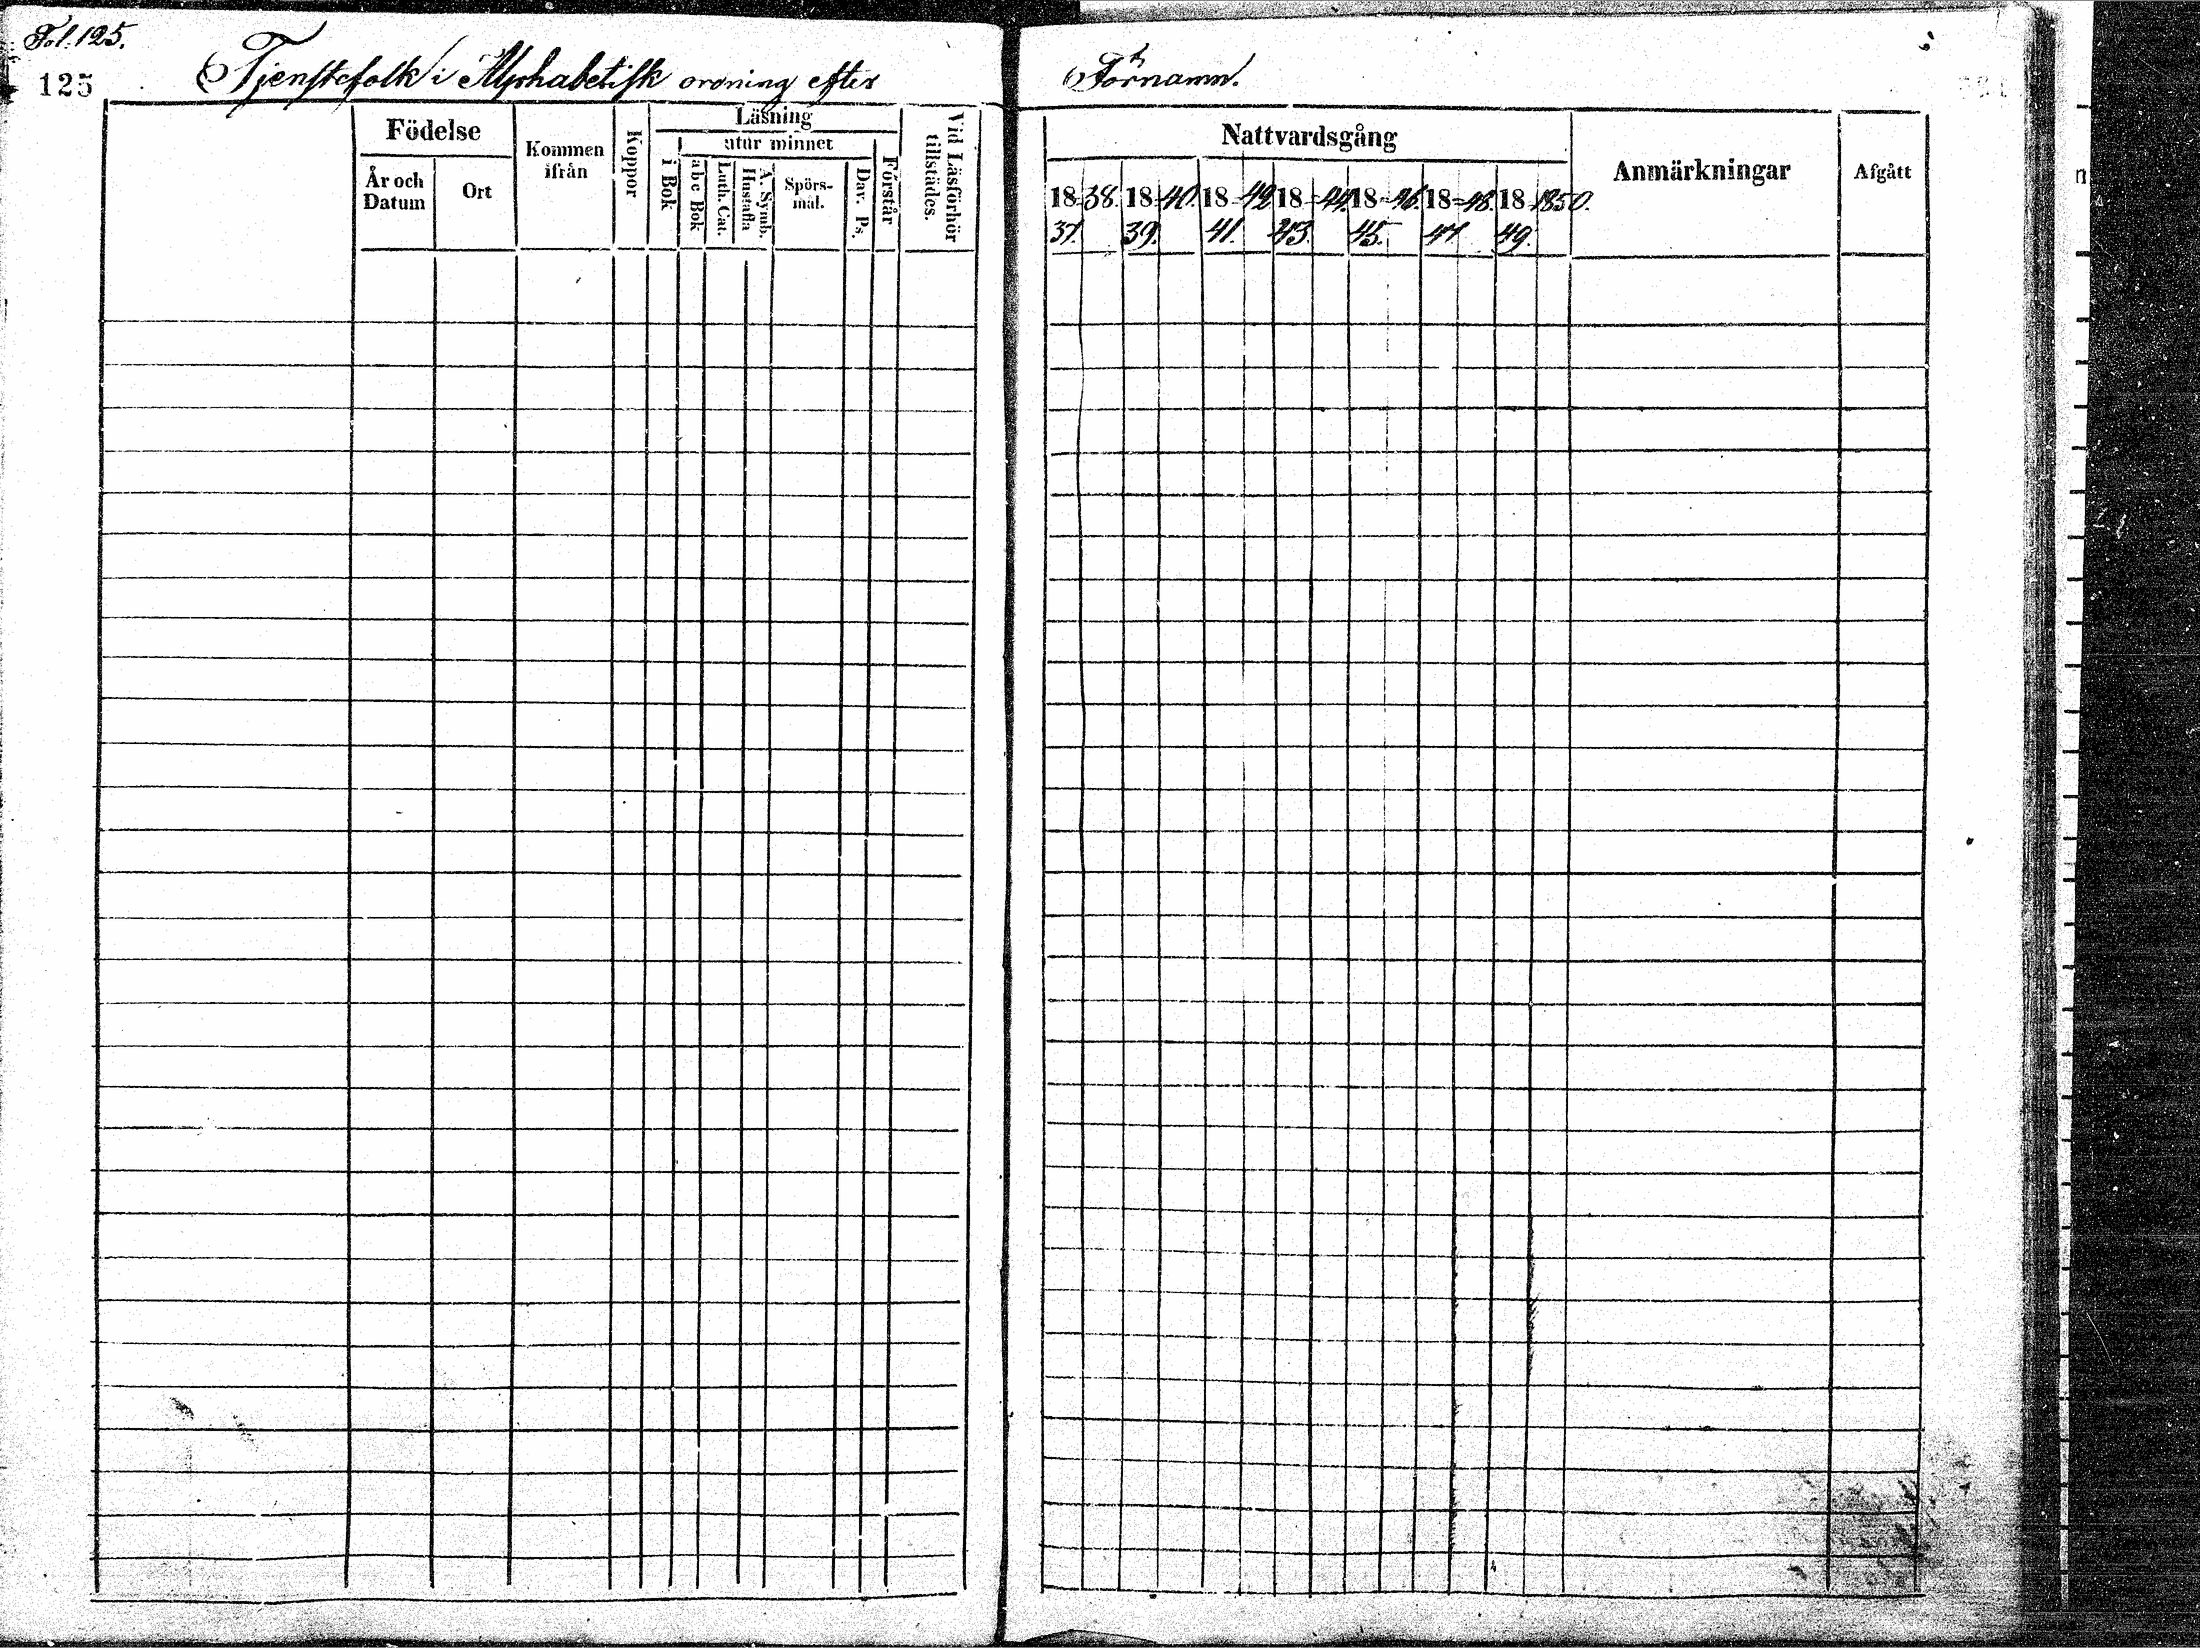 Fol. 125.
125
Tjenstefolk i Alphabetisk ordning efter
Förnamn.
Födelse
År och Datum
Ort
Kommen ifrån
Koppor
Läsning
i Bok
utur minnet
abc Bok
Luth. Cat.
Hustafla
A. Symb.
Spörs-
mål.
Dav. Ps.
Förstår
Vid Läsförhör
tillstädes.
Nattvardsgång
18 38. 18 40. 18 42 18 44 18 46. 18 48. 18 1850.
37. 39. 41. 43. 45. 47 49.
Anmärkningar
Afgått